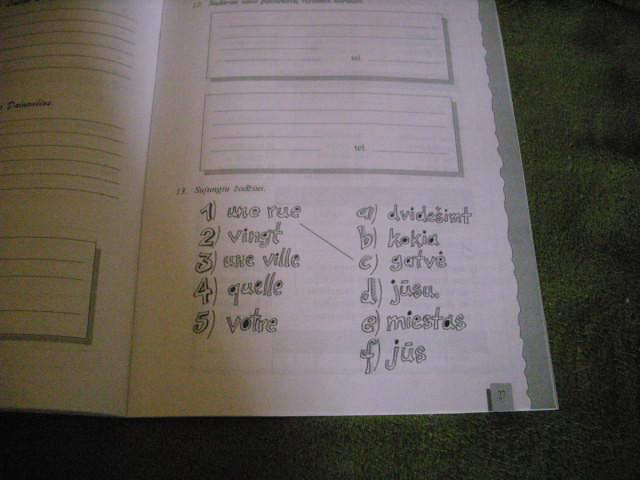 12.
tel.
tel.
Dainavičius.
13. Sujungiu žodžius.
1) une rue a) dvidešimt
2) vingt b) kokia
3) une ville c) gatvė
4) quelle d) jūsų.
5) votre e) miestas
f) jūs